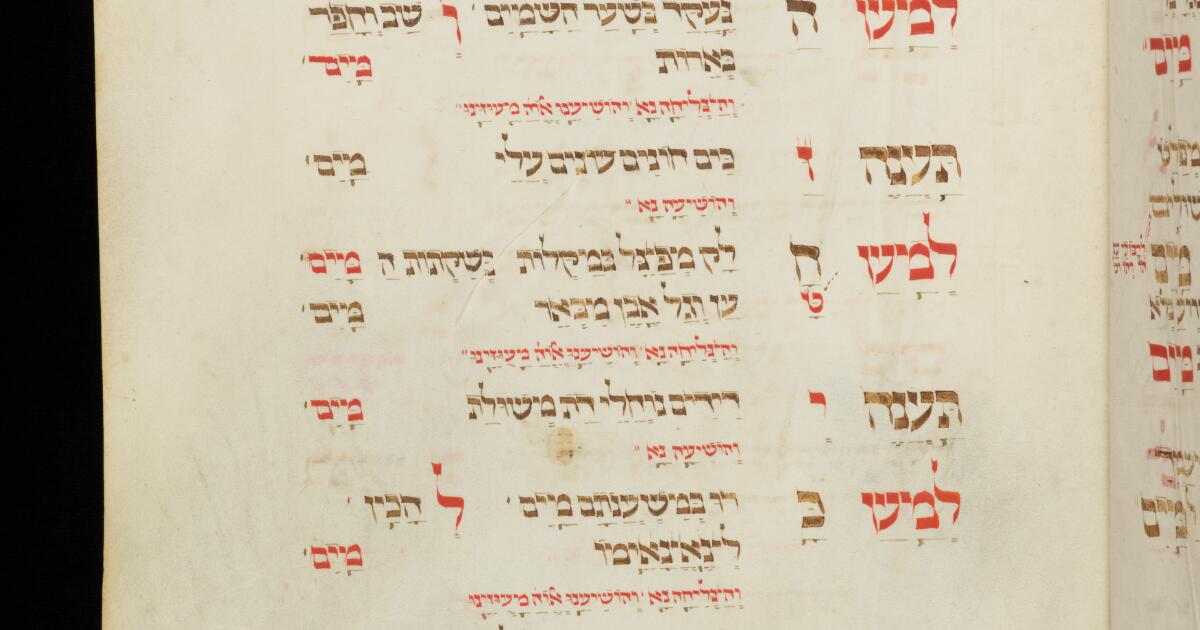 למישן ה נעקד בשער השמים ו שב וחפר
בארות מים
והצליחה נא והושיענו אלוה מעוזינו
תענה ז בים חונים שונים עלי מים
והושיעה נא
למישן ח לק מפצל במקלות בשקתות ה מים
ט ען וגל אבן מבאר מים
והצליחה נא והושיענו אלוה מעוזינו
תענה י ידידים נוחלי דת משולת מים
והושיעה נא
למישן כ רו במשענתם מים ל הכין
לינאינאימו מים
והצליחה נא והושיענו אלוה מעוזינו